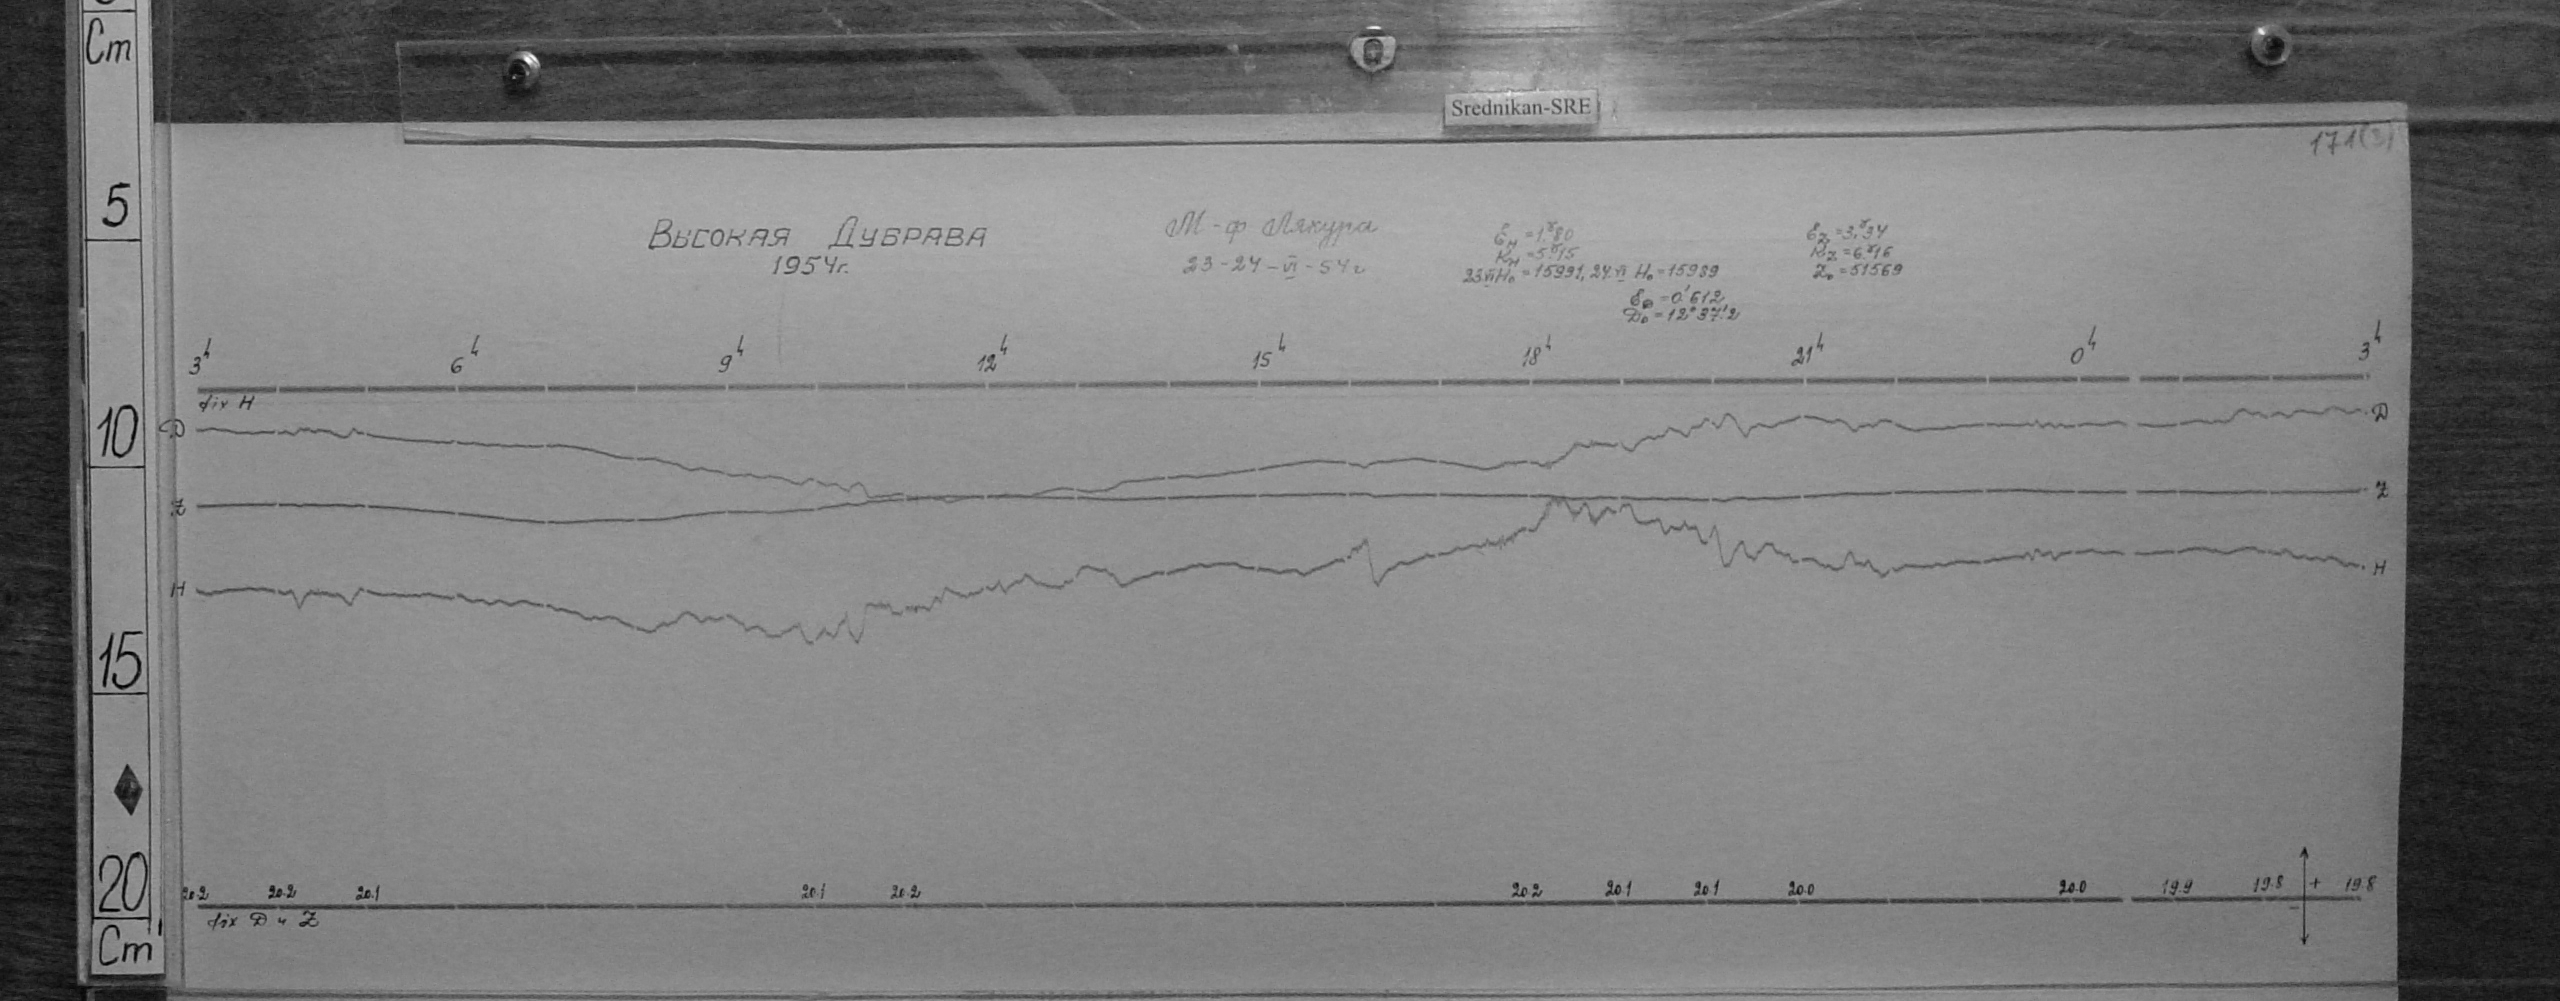 Cm
5
10
15
20
Cm
Srednikan-SRE
171(3)
Высокая Дубрава
1954г.
М-ф Лякура
23-24-VI-54г
Ɛн=1.ᵞ80
Kн=5.ᵞ15
23VI H₀=15991, 24.VI H₀=15989
ƐD=0'612
D₀=12°37'.2
Ɛz=3.ᵞ34
Kz=6.ᵞ16
Z₀=51569
3ʰ 6ʰ 9ʰ 12ʰ 15ʰ 18ʰ 21ʰ 0ʰ 3ʰ
fix H
D D
Z Z
H H
20.2 20.2 20.1 20.1 20.2 20.2 20.1 20.1 20.0 20.0 19.9 19.8 + 19.8
-
fix D и Z